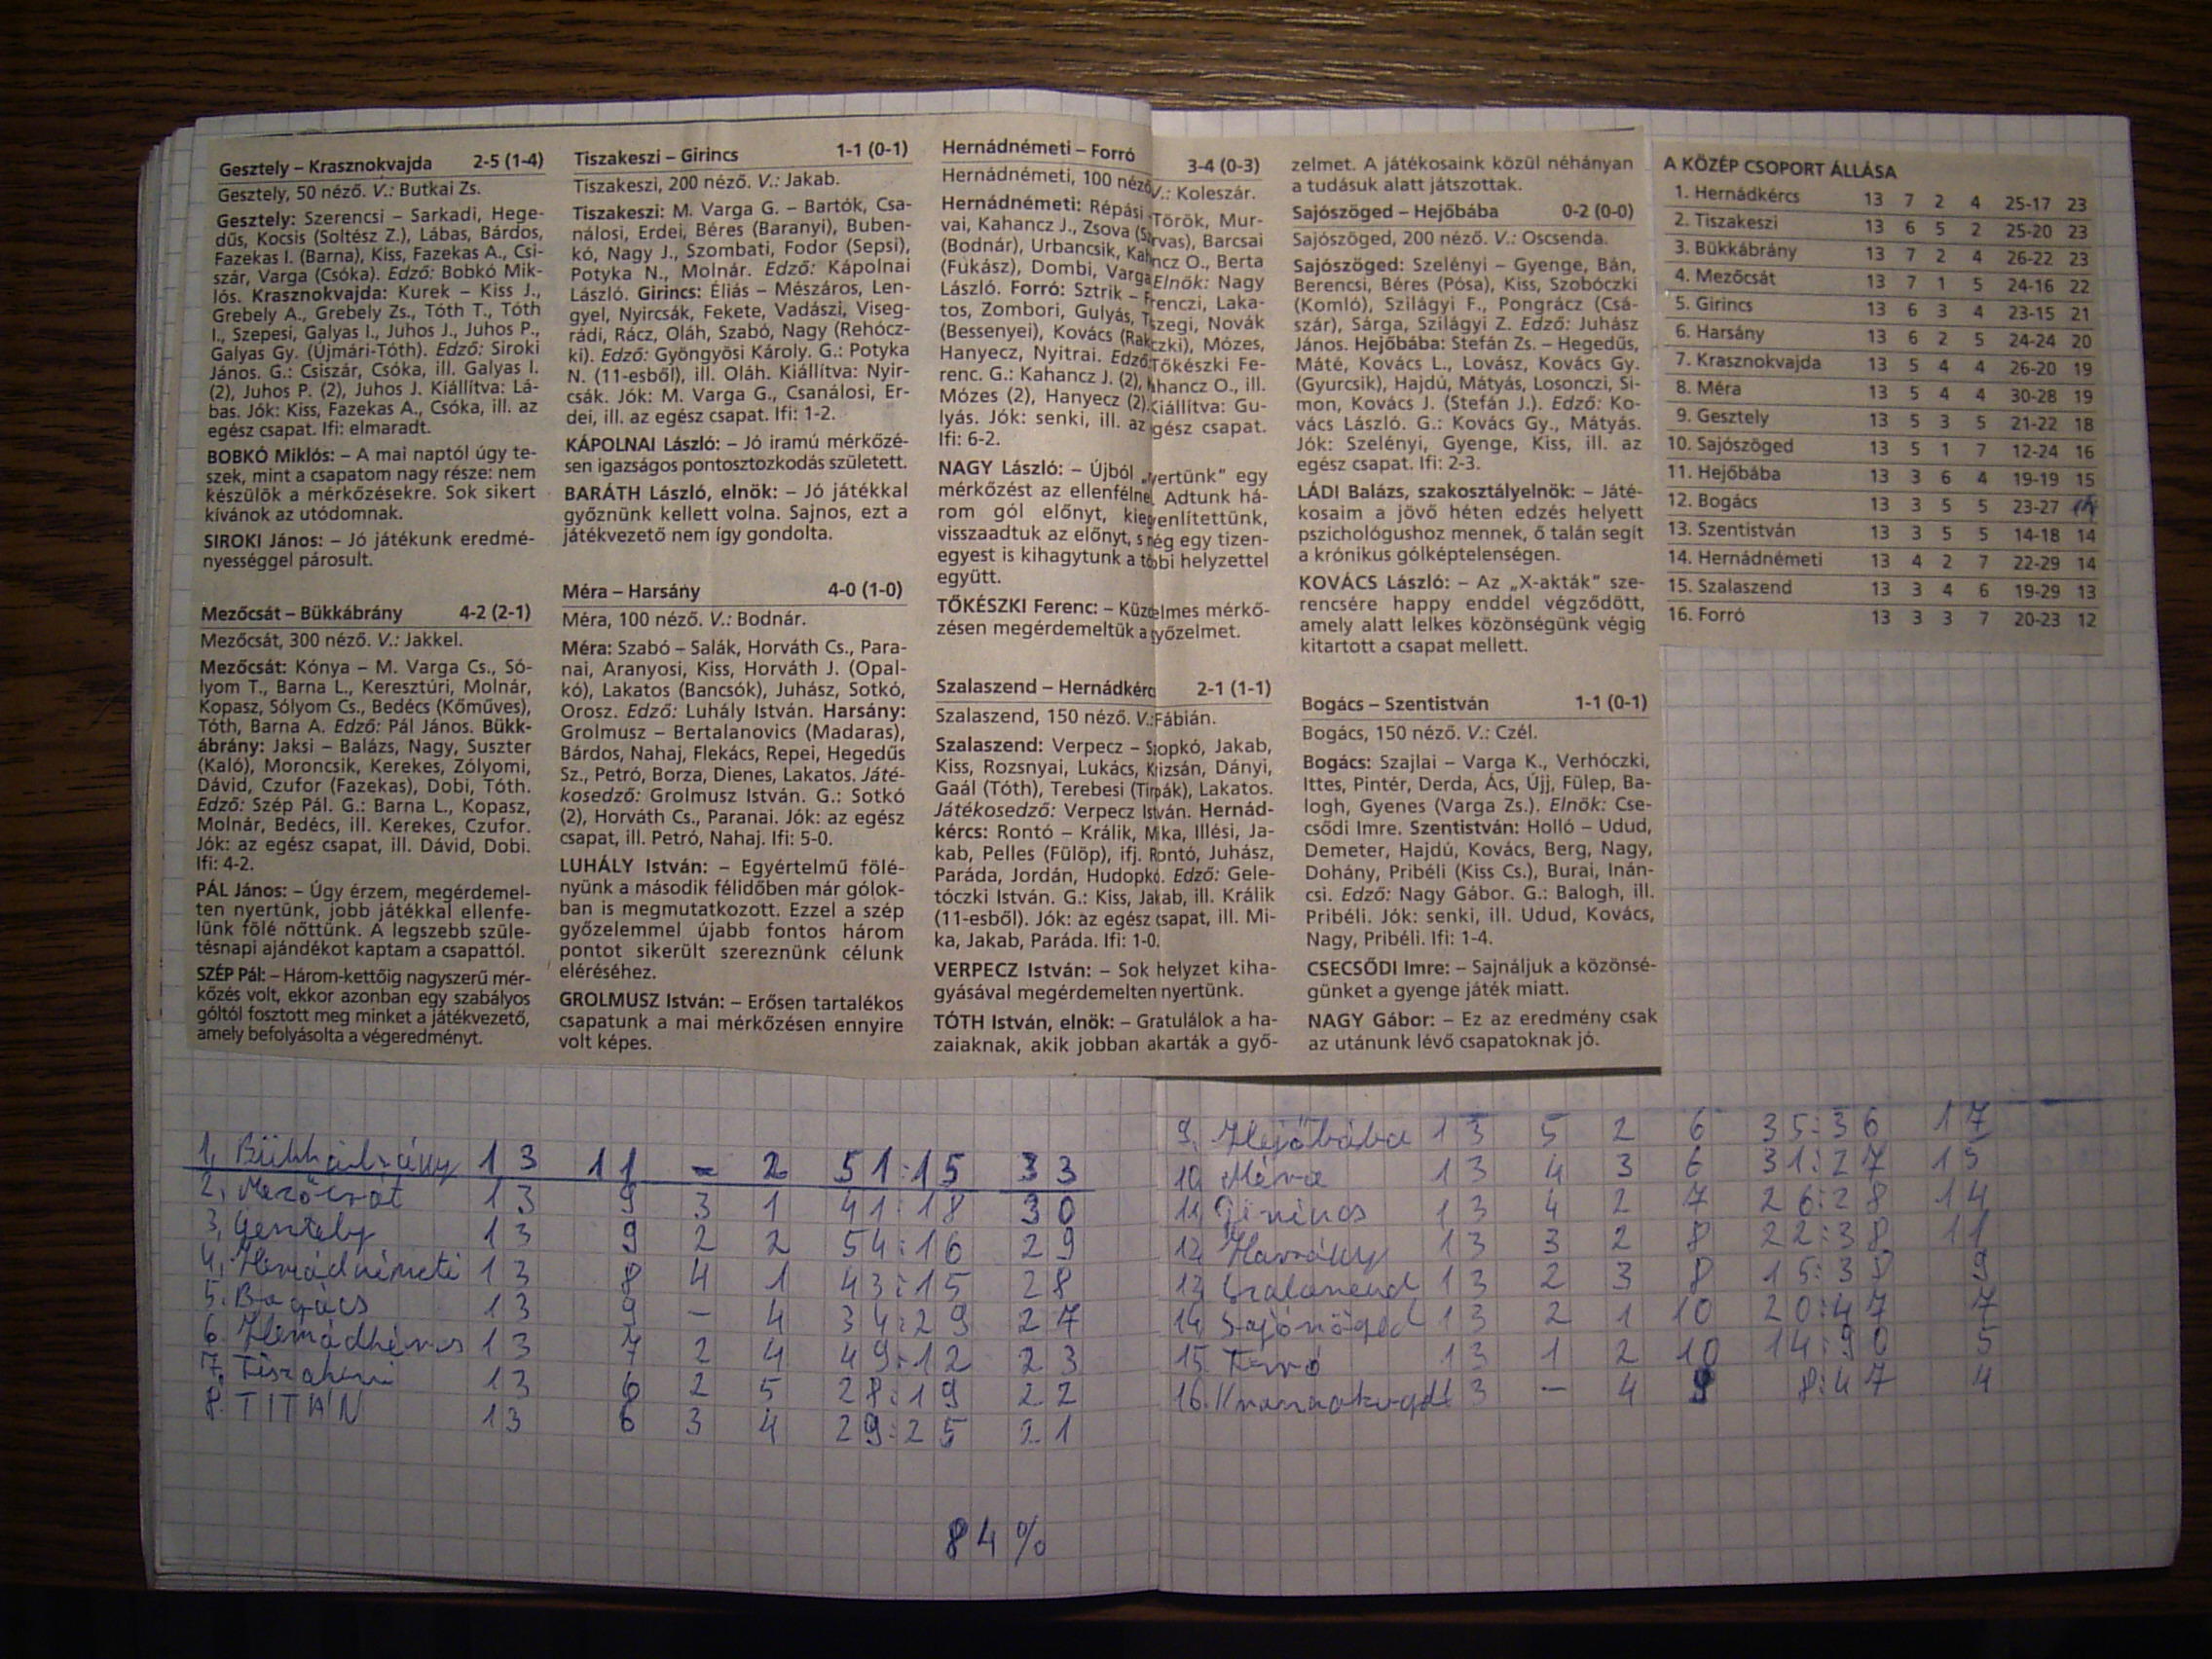 Gesztely – Krasznokvajda 2-5 (1-4)
Gesztely, 50 néző. V.: Butkai Zs.
Gesztely: Szerencsi – Sarkadi, Hege-
dűs, Kocsis (Soltész Z.), Lábas, Bárdos,
Fazekas I. (Barna), Kiss, Fazekas A., Csi-
szár, Varga (Csóka). Edző: Bobkó Mik-
lós. Krasznokvajda: Kurek – Kiss J.,
Grebely A., Grebely Zs., Tóth T., Tóth
I., Szepesi, Galyas I., Juhos J., Juhos P.,
Galyas Gy. (Újmári-Tóth). Edző: Siroki
János. G.: Csiszár, Csóka, ill. Galyas I.
(2), Juhos P. (2), Juhos J. Kiállítva: Lá-
bas. Jók: Kiss, Fazekas A., Csóka, ill. az
egész csapat. Ifi: elmaradt.
BOBKÓ Miklós: – A mai naptól úgy te-
szek, mint a csapatom nagy része: nem
készülök a mérkőzésekre. Sok sikert
kívánok az utódomnak.
SIROKI János: – Jó játékunk eredmé-
nyességgel párosult.
Mezőcsát – Bükkábrány 4-2 (2-1)
Mezőcsát, 300 néző. V.: Jakkel.
Mezőcsát: Kónya – M. Varga Cs., Só-
lyom T., Barna L., Keresztúri, Molnár,
Kopasz, Sólyom Cs., Bedécs (Kőműves),
Tóth, Barna A. Edző: Pál János. Bükk-
ábrány: Jaksi – Balázs, Nagy, Suszter
(Kaló), Moroncsik, Kerekes, Zólyomi,
Dávid, Czufor (Fazekas), Dobi, Tóth.
Edző: Szép Pál. G.: Barna L., Kopasz,
Molnár, Bedécs, ill. Kerekes, Czufor.
Jók: az egész csapat, ill. Dávid, Dobi.
Ifi: 4-2.
PÁL János: – Úgy érzem, megérdemel-
ten nyertünk, jobb játékkal ellenfe-
lünk fölé nőttünk. A legszebb szüle-
tésnapi ajándékot kaptam a csapattól.
SZÉP Pál: – Három-kettőig nagyszerű mér-
kőzés volt, ekkor azonban egy szabályos
góltól fosztott meg minket a játékvezető,
amely befolyásolta a végeredményt.
Tiszakeszi – Girincs 1-1 (0-1)
Tiszakeszi, 200 néző. V.: Jakab.
Tiszakeszi: M. Varga G. – Bartók, Csa-
nálosi, Erdei, Béres (Baranyi), Buben-
kó, Nagy J., Szombati, Fodor (Sepsi),
Potyka N., Molnár. Edző: Kápolnai
László. Girincs: Éliás – Mészáros, Len-
gyel, Nyircsák, Fekete, Vadászi, Viseg-
rádi, Rácz, Oláh, Szabó, Nagy (Rehócz-
ki). Edző: Gyöngyösi Károly. G.: Potyka
N. (11-esből), ill. Oláh. Kiállítva: Nyir-
csák. Jók: M. Varga G., Csanálosi, Er-
dei, ill. az egész csapat. Ifi: 1-2.
KÁPOLNAI László: – Jó iramú mérkőzé-
sen igazságos pontosztozkodás született.
BARÁTH László, elnök: – Jó játékkal
győznünk kellett volna. Sajnos, ezt a
játékvezető nem így gondolta.
Méra – Harsány 4-0 (1-0)
Méra, 100 néző. V.: Bodnár.
Méra: Szabó – Salák, Horváth Cs., Para-
nai, Aranyosi, Kiss, Horváth J. (Opal-
kó), Lakatos (Bancsók), Juhász, Sotkó,
Orosz. Edző: Luhály István. Harsány:
Grolmusz – Bertalanovics (Madaras),
Bárdos, Nahaj, Flekács, Repei, Hegedűs
Sz., Petró, Borza, Dienes, Lakatos. Játé-
kosedző: Grolmusz István. G.: Sotkó
(2), Horváth Cs., Paranai. Jók: az egész
csapat, ill. Petró, Nahaj. Ifi: 5-0.
LUHÁLY István: – Egyértelmű fölé-
nyünk a második félidőben már gólok-
ban is megmutatkozott. Ezzel a szép
győzelemmel újabb fontos három
pontot sikerült szereznünk célunk
eléréséhez.
GROLMUSZ István: – Erősen tartalékos
csapatunk a mai mérkőzésen ennyire
volt képes.
Hernádnémeti – Forró 3-4 (0-3)
Hernádnémeti, 100 néző V.: Koleszár.
Hernádnémeti: Répási Török, Mur-
vai, Kahancz J., Zsova rvas), Barcsai
(Bodnár), Urbancsik, Kahancz O., Berta
(Fükász), Dombi, Varga Elnök: Nagy
László. Forró: Sztrik – Ferenczi, Laka-
tos, Zombori, Gulyás, szegi, Novák
(Bessenyei), Kovács (Rakczki), Mózes,
Hanyecz, Nyitrai. Edző: Tőkészki Fe-
renc. G.: Kahancz J. (2), Kahancz O., ill.
Mózes (2), Hanyecz (2). Kiállítva: Gu-
lyás. Jók: senki, ill. az egész csapat.
Ifi: 6-2.
NAGY László: – Újból „nyertünk” egy
mérkőzést az ellenfélnek. Adtunk há-
rom gól előnyt, kiegyenlítettünk,
visszaadtuk az előnyt, s még egy tizen-
egyest is kihagytunk a többi helyzettel
együtt.
TŐKÉSZKI Ferenc: – Küzdelmes mérkő-
zésen megérdemeltük a győzelmet.
Szalaszend – Hernádkérc 2-1 (1-1)
Szalaszend, 150 néző. V.: Fábián.
Szalaszend: Verpecz – Szopkó, Jakab,
Kiss, Rozsnyai, Lukács, Krizsán, Dányi,
Gaál (Tóth), Terebesi (Tirpák), Lakatos.
Játékosedző: Verpecz István. Hernád-
kércs: Rontó – Králik, Mika, Illési, Ja-
kab, Pelles (Fülöp), ifj. Rontó, Juhász,
Paráda, Jordán, Hudopkó. Edző: Gele-
tóczki István. G.: Kiss, Jakab, ill. Králik
(11-esből). Jók: az egész csapat, ill. Mi-
ka, Jakab, Paráda. Ifi: 1-0.
VERPECZ István: – Sok helyzet kiha-
gyásával megérdemelten nyertünk.
TÓTH István, elnök: – Gratulálok a ha-
zaiaknak, akik jobban akarták a győ-
zelmet. A játékosaink közül néhányan
a tudásuk alatt játszottak.
Sajószöged – Hejőbába 0-2 (0-0)
Sajószöged, 200 néző. V.: Oscsenda.
Sajószöged: Szelényi – Gyenge, Bán,
Berencsi, Béres (Pósa), Kiss, Szobóczki
(Komló), Szilágyi F., Pongrácz (Csá-
szár), Sárga, Szilágyi Z. Edző: Juhász
János. Hejőbába: Stefán Zs. – Hegedűs,
Máté, Kovács L., Lovász, Kovács Gy.
(Gyurcsik), Hajdú, Mátyás, Losonczi, Si-
mon, Kovács J. (Stefán J.). Edző: Ko-
vács László. G.: Kovács Gy., Mátyás.
Jók: Szelényi, Gyenge, Kiss, ill. az
egész csapat. Ifi: 2-3.
LÁDI Balázs, szakosztályelnök: – Játé-
kosaim a jövő héten edzés helyett
pszichológushoz mennek, ő talán segít
a krónikus gólképtelenségen.
KOVÁCS László: – Az „X-akták” sze-
rencsére happy enddel végződött,
amely alatt lelkes közönségünk végig
kitartott a csapat mellett.
Bogács – Szentistván 1-1 (0-1)
Bogács, 150 néző. V.: Czél.
Bogács: Szajlai – Varga K., Verhóczki,
Ittes, Pintér, Derda, Ács, Újj, Fülep, Ba-
logh, Gyenes (Varga Zs.). Elnök: Cse-
csődi Imre. Szentistván: Holló – Udud,
Demeter, Hajdú, Kovács, Berg, Nagy,
Dohány, Pribéli (Kiss Cs.), Burai, Inán-
csi. Edző: Nagy Gábor. G.: Balogh, ill.
Pribéli. Jók: senki, ill. Udud, Kovács,
Nagy, Pribéli. Ifi: 1-4.
CSECSŐDI Imre: – Sajnáljuk a közönsé-
günket a gyenge játék miatt.
NAGY Gábor: – Ez az eredmény csak
az utánunk lévő csapatoknak jó.
A KÖZÉP CSOPORT ÁLLÁSA
1. Hernádkércs 13 7 2 4 25-17 23
2. Tiszakeszi 13 6 5 2 25-20 23
3. Bükkábrány 13 7 2 4 26-22 23
4. Mezőcsát 13 7 1 5 24-16 22
5. Girincs 13 6 3 4 23-15 21
6. Harsány 13 6 2 5 24-24 20
7. Krasznokvajda 13 5 4 4 26-20 19
8. Méra 13 5 4 4 30-28 19
9. Gesztely 13 5 3 5 21-22 18
10. Sajószöged 13 5 1 7 12-24 16
11. Hejőbába 13 3 6 4 19-19 15
12. Bogács 13 3 5 5 23-27
13. Szentistván 13 3 5 5 14-18 14
14. Hernádnémeti 13 4 2 7 22-29 14
15. Szalaszend 13 3 4 6 19-29 13
16. Forró 13 3 3 7 20-23 12
1. Bükkábrány 13 11 - 2 51:15 33
2. Mezőcsát 13 9 3 1 41:18 30
3. Gesztely 13 9 2 2 54:16 29
4. Hernádnémeti 13 8 4 1 43:15 28
5. Bogács 13 9 - 4 34:29 27
6. Hernádkércs 13 7 2 4 49:12 23
7. Tiszakeszi 13 6 2 5 28:19 22
8. TITÁN 13 6 3 4 29:25 21
84%
9. Hejőbába 13 5 2 6 35:36 17
10. Méra 13 4 3 6 31:27 15
11. Girincs 13 4 2 7 26:28 14
12. Harsány 13 3 2 8 22:38 11
13. Szalaszend 13 2 3 8 9
14. Sajószöged 13 2 1 10 20:47 7
15. Forró 13 1 2 10 14:90 5
16. 13 - 4 9 8:47 4